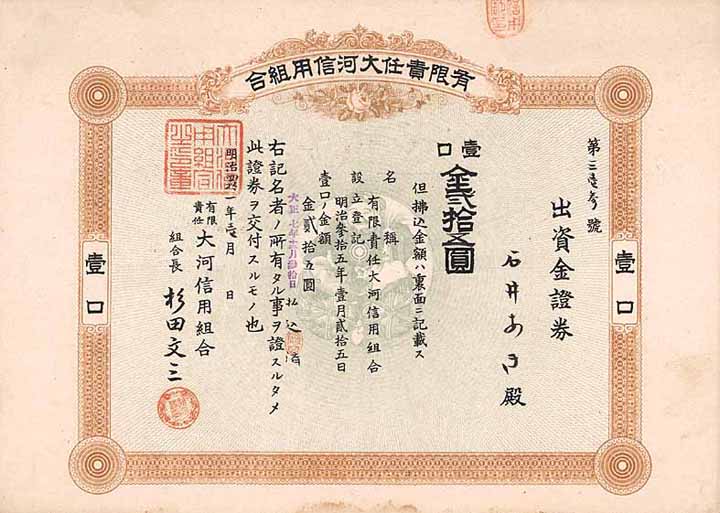 有限責任大河信用組合
壹口
壹口
第三壹参號
出資金證券
石井あき殿
壹口
金貳拾五圓
但拂込金額ハ裏面ニ記載ス
名稱
有限責任大河信用組合
設立登記
明治参拾五年壹月貳拾五日
壹口ノ金額
金貳拾五圓
右記名者ノ所有タル事ヲ證スルタメ
此證券ヲ交付スルモノ也
月 日
有限責任
大河信用組合
組合長
杉田文三